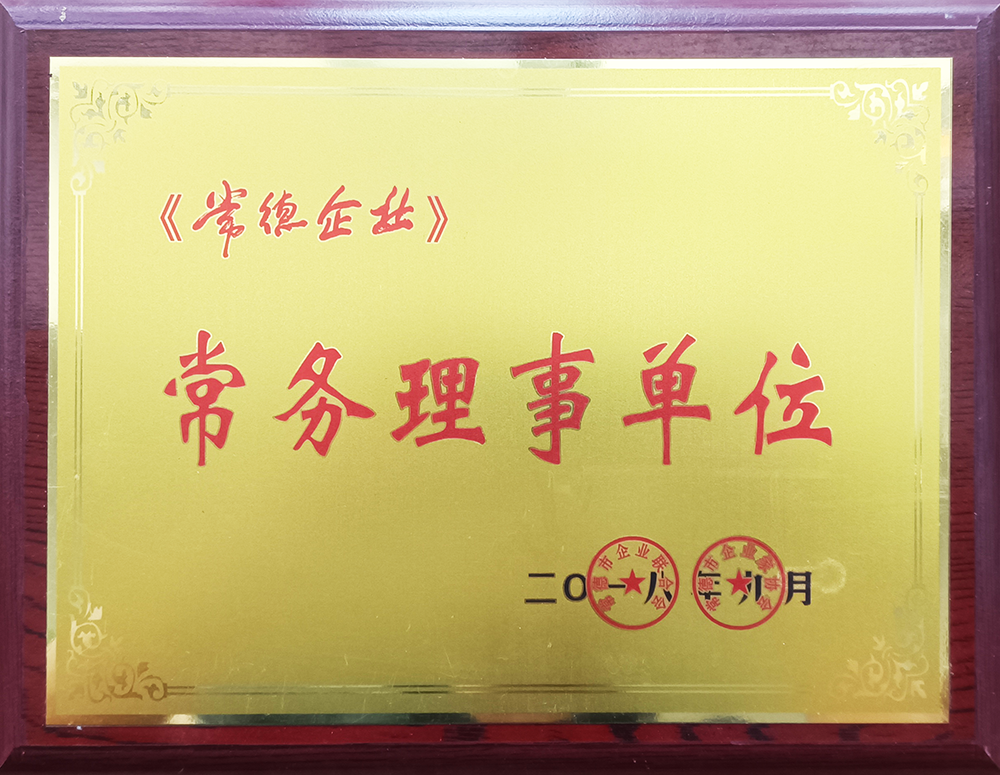 《常德企业》
常务理事单位
二〇一八年九月
常德市企业联合会
常德市企业家协会